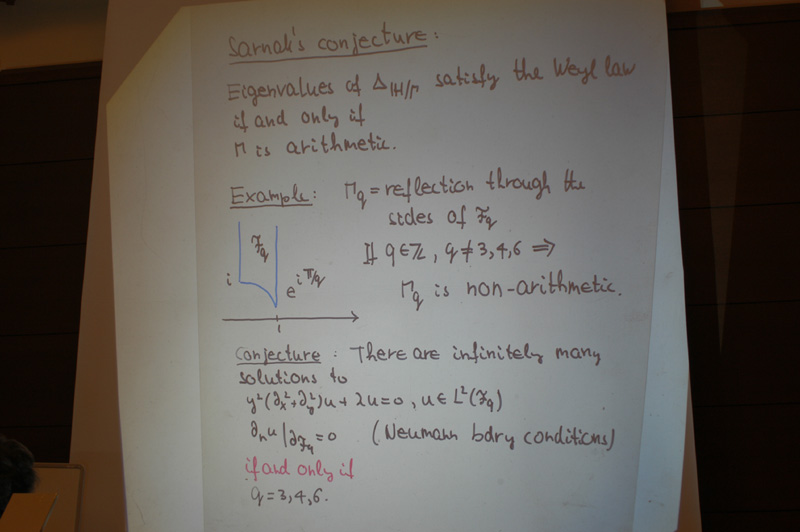 Sarnak's conjecture:
Eigenvalues of Δ_{ℍ/Γ} satisfy the Weyl law
if and only if
Γ is arithmetic.
Example: Γ_q = reflection through the
sides of ℱ_q
ℱ_q
If q ∈ ℤ, q ≠ 3,4,6 ⟹
i
e^{iπ/q}
Γ_q is non-arithmetic.
1
Conjecture: There are infinitely many
solutions to
y²(∂_x²+∂_y²)u + λu = 0, u ∈ L²(ℱ_q)
∂_n u|_{∂ℱ_q} = 0 (Neumann bdry conditions)
if and only if
q = 3,4,6.